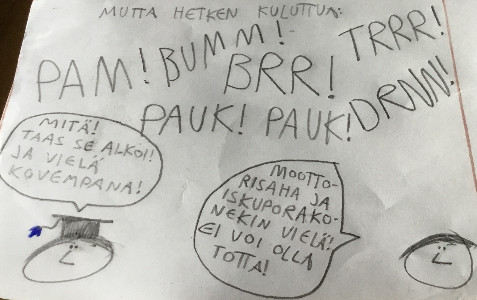 MUTTA HETKEN KULUTTUA:
PAM! BUMM! BRR! TRRR!
PAUK! PAUK! DRNN!
MITÄ!
TAAS SE ALKOI!
JA VIELÄ
KOVEMPANA!
MOOTTO-
RISAHA JA
ISKUPORAKO-
NEKIN VIELÄ!
EI VOI OLLA
TOTTA!